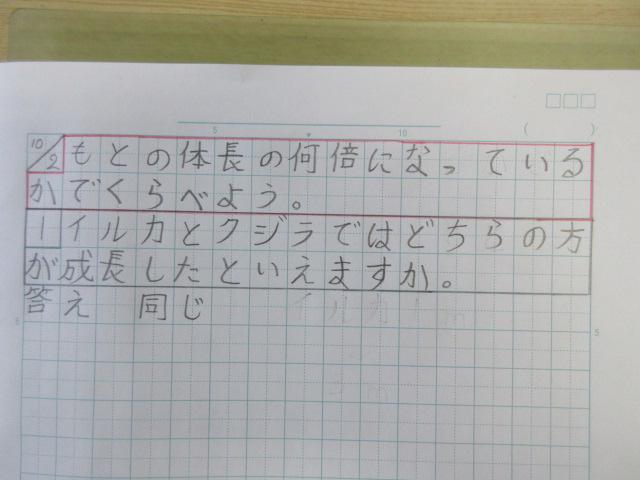 5 10 ( )
10/2 もとの体長の何倍になっている
かでくらべよう。
1 イルカとクジラではどちらの方
が成長したといえますか。
答え 同じ
5 5